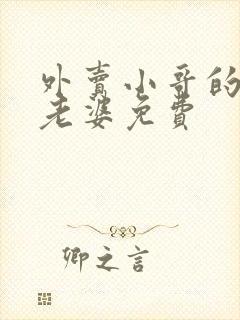 外賣小哥的
老婆免費
卿之言